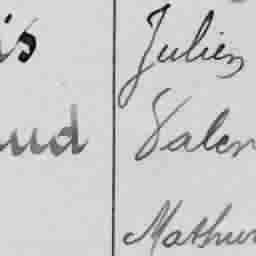 is Julien
aud Valen
Mathur